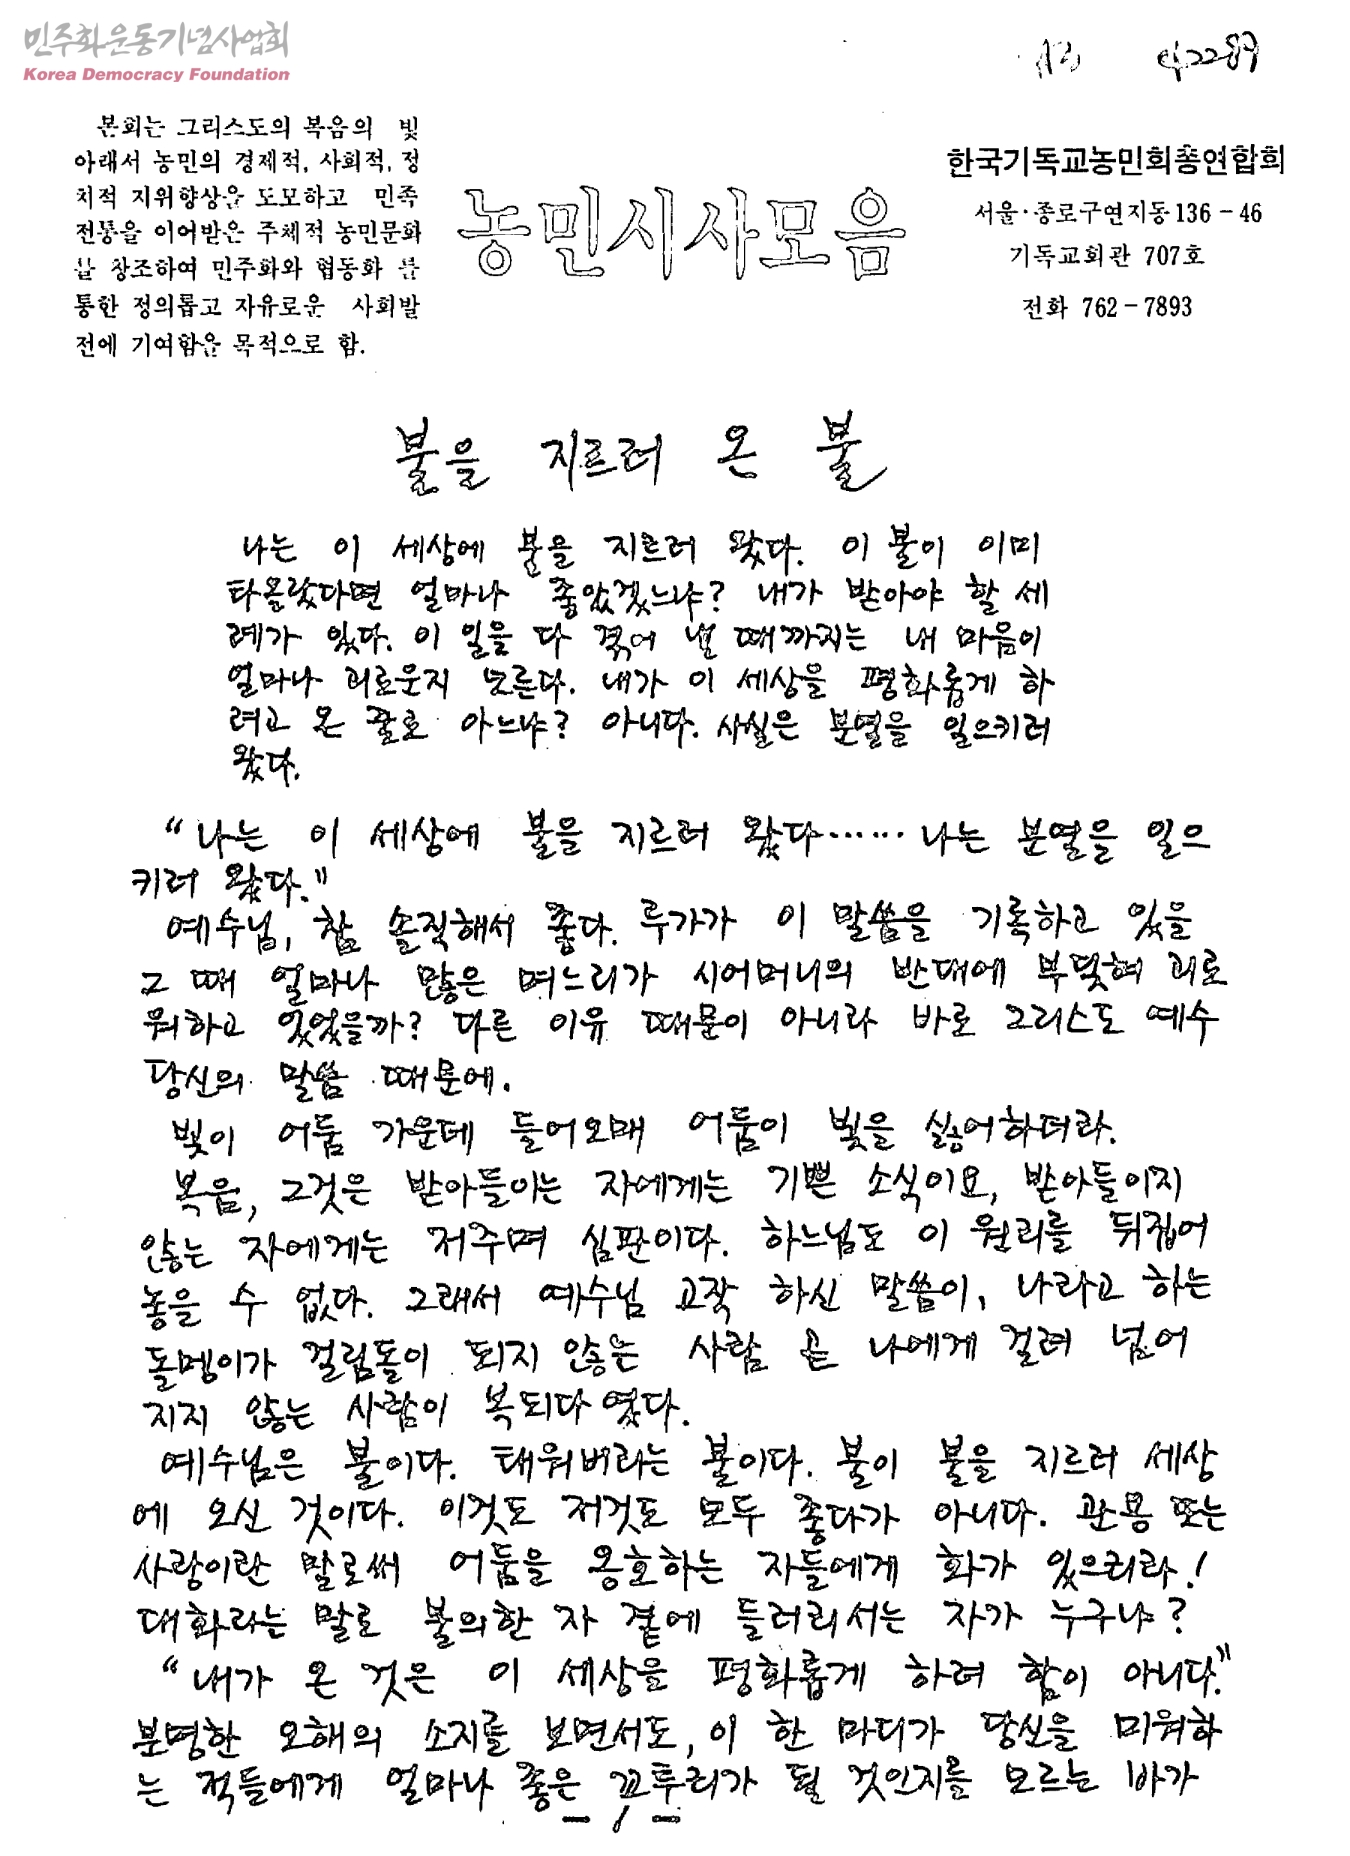 민주화운동기념사업회
Korea Democracy Foundation
본회는 그리스도의 복음의 빛
아래서 농민의 경제적, 사회적, 정
치적 지위향상을 도모하고 민족
전통을 이어받은 주체적 농민문화
를 창조하여 민주화와 협동화 를
통한 정의롭고 자유로운 사회발
전에 기여함을 목적으로 함.
농민시사모음
한국기독교농민회총연합회
서울·종로구연지동136-46
기독교회관 707호
전화 762-7893
불을 지르러 온 불
나는 이 세상에 불을 지르러 왔다. 이 불이 이미
타올랐다면 얼마나 좋았겠느냐? 내가 받아야 할 세
례가 있다. 이 일을 다 겪어 낼 때까지는 내 마음이
얼마나 괴로운지 모른다. 내가 이 세상을 평화롭게 하
려고 온 줄로 아느냐? 아니다. 사실은 분열을 일으키러
왔다.
"나는 이 세상에 불을 지르러 왔다…… 나는 분열을 일으
키러 왔다."
예수님, 참 솔직해서 좋다. 루가가 이 말씀을 기록하고 있을
그 때 얼마나 많은 며느리가 시어머니의 반대에 부딪혀 괴로
워하고 있었을까? 다른 이유 때문이 아니라 바로 그리스도 예수
당신의 말씀 때문에.
빛이 어둠 가운데 들어오매 어둠이 빛을 싫어하더라.
복음, 그것은 받아들이는 자에게는 기쁜 소식이요, 받아들이지
않는 자에게는 저주며 심판이다. 하느님도 이 원리를 뒤집어
놓을 수 없다. 그래서 예수님 고작 하신 말씀이, 나라고 하는
돌멩이가 걸림돌이 되지 않는 사람 곧 나에게 걸려 넘어
지지 않는 사람이 복되다 였다.
예수님은 불이다. 태워버리는 불이다. 불이 불을 지르러 세상
에 오신 것이다. 이것도 저것도 모두 좋다가 아니다. 관용 또는
사랑이란 말로써 어둠을 옹호하는 자들에게 화가 있으리라!
대화라는 말로 불의한 자 곁에 들러리서는 자가 누구냐?
"내가 온 것은 이 세상을 평화롭게 하려 함이 아니다."
분명한 오해의 소지를 보면서도, 이 한 마디가 당신을 미워하
는 적들에게 얼마나 좋은 꼬투리가 될 것인지를 모르는 바가
- 1 -